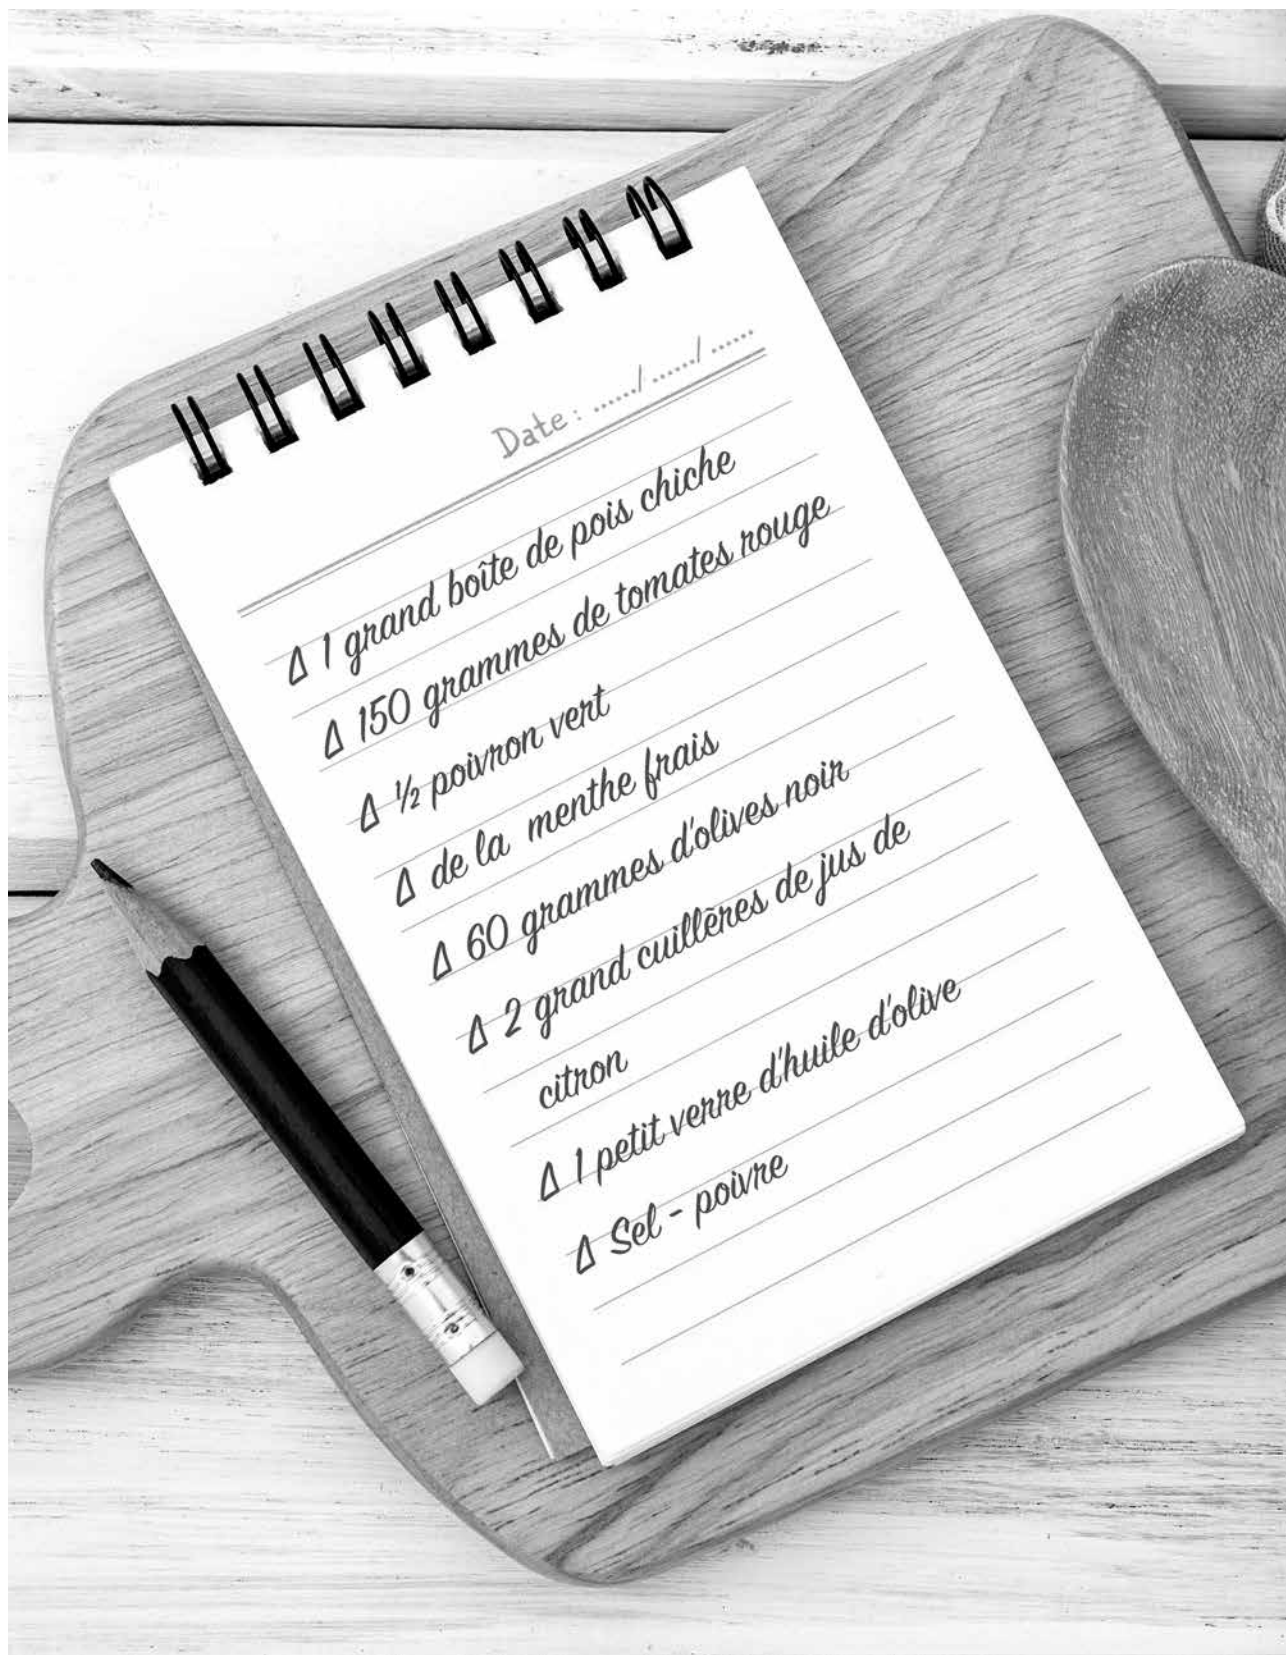 Date : ....../ ....../ ......
Δ 1 grand boîte de pois chiche
Δ 150 grammes de tomates rouge
Δ ½ poivron vert
Δ de la menthe frais
Δ 60 grammes d'olives noir
Δ 2 grand cuillēres de jus de
citron
Δ 1 petit verre d'huile d'olive
Δ Sel - poivre